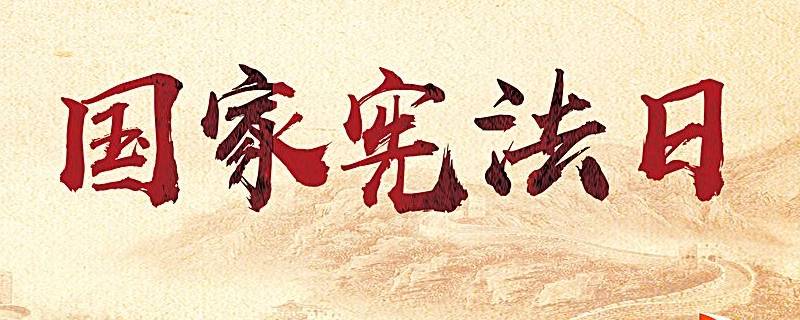 国家宪法日